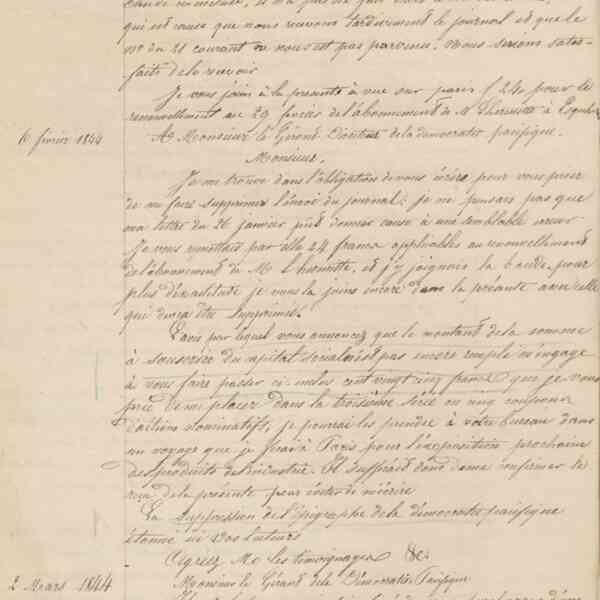 qui est cause que nous recevons tardivement le journal et que le
N° du 21 courant ne nous est pas parvenu. Nous serions satis-
faits de le recevoir
Je vous joins à la présente à vue sur paris f 24 pour le
renouvellement au 29 février de l'abonnement de Mr Lhermitte à
6 février 1844
A Monsieur le Gérant Directeur de la démocratie pacifique.
Monsieur.
Je me trouve dans l'obligation de vous écrire pour vous prier
de me faire supprimer l'envoi du journal; je ne pensais pas que
ma lettre du 26 janvier pût donner cause à une semblable erreur
Je vous remettais par elle 24 francs applicables au renouvellement
de l'abonnement de Mr Lhermitte, et j'y joignais la bande, pour
plus d'exactitude je vous la joins encore dans la présente avec celle
qui devra être supprimée.
L'avis par lequel vous annoncez que le montant de la somme
à souscrire du capital social n'est pas encore remplie m'engage
à vous faire passer ci-inclus cent vingt cinq francs que je vous
prie d'employer dans la troisième série en cinq coupons
d'actions nominatifs, je pourrai les prendre à votre bureau dans
un voyage que je ferai à Paris pour l'exposition prochaine
des produits de l'industrie. Il suffirait donc de me confirmer le
recu de la présente pour éviter de m'écrire
La suppression de l'épigraphe de la démocratie pacifique
étonne vos lecteurs
Agréez Mr les témoignages &c.
2 Mars 1844
Monsieur le Gérant de la Démocratie Pacifique